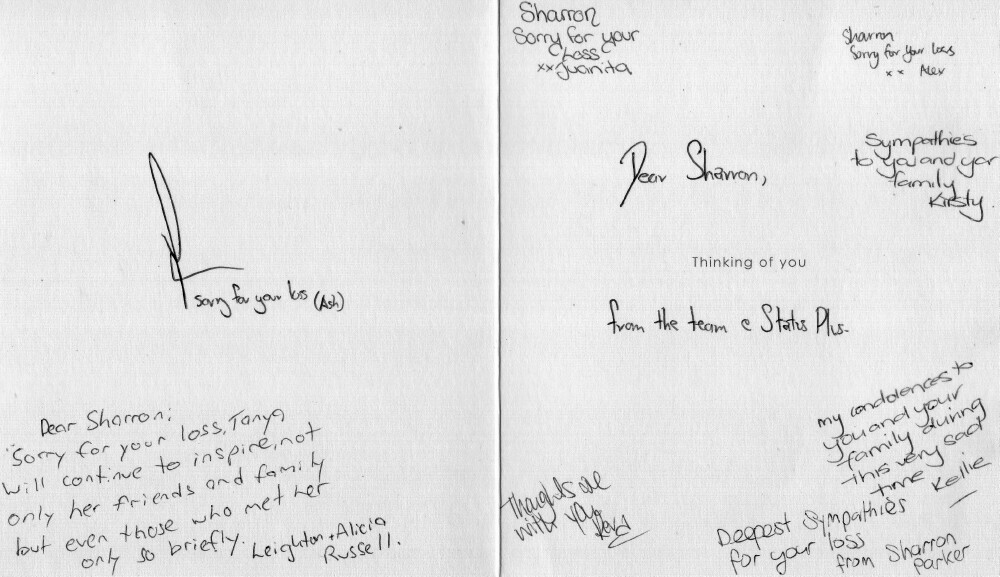 sorry for your loss (Ash)
Dear Sharron;
Sorry for your loss, Tanya
will continue to inspire, not
only her friends and family
but even those who met her
only so briefly.
Leighton + Alicia
Russell.
Sharron
Sorry for your
Loss
xx Juanita
Sharron
Sorry for your loss
x x Alex
Sympathies
to you and your
family
Kirsty.
Dear Sharron,
Thinking of you
from the team @ Status Plus.
my condolences to
you and your
family during
this very sad
time Kellie
Thoughts are
with you
Deepest Sympathies
for your loss
from Sharron
Parker